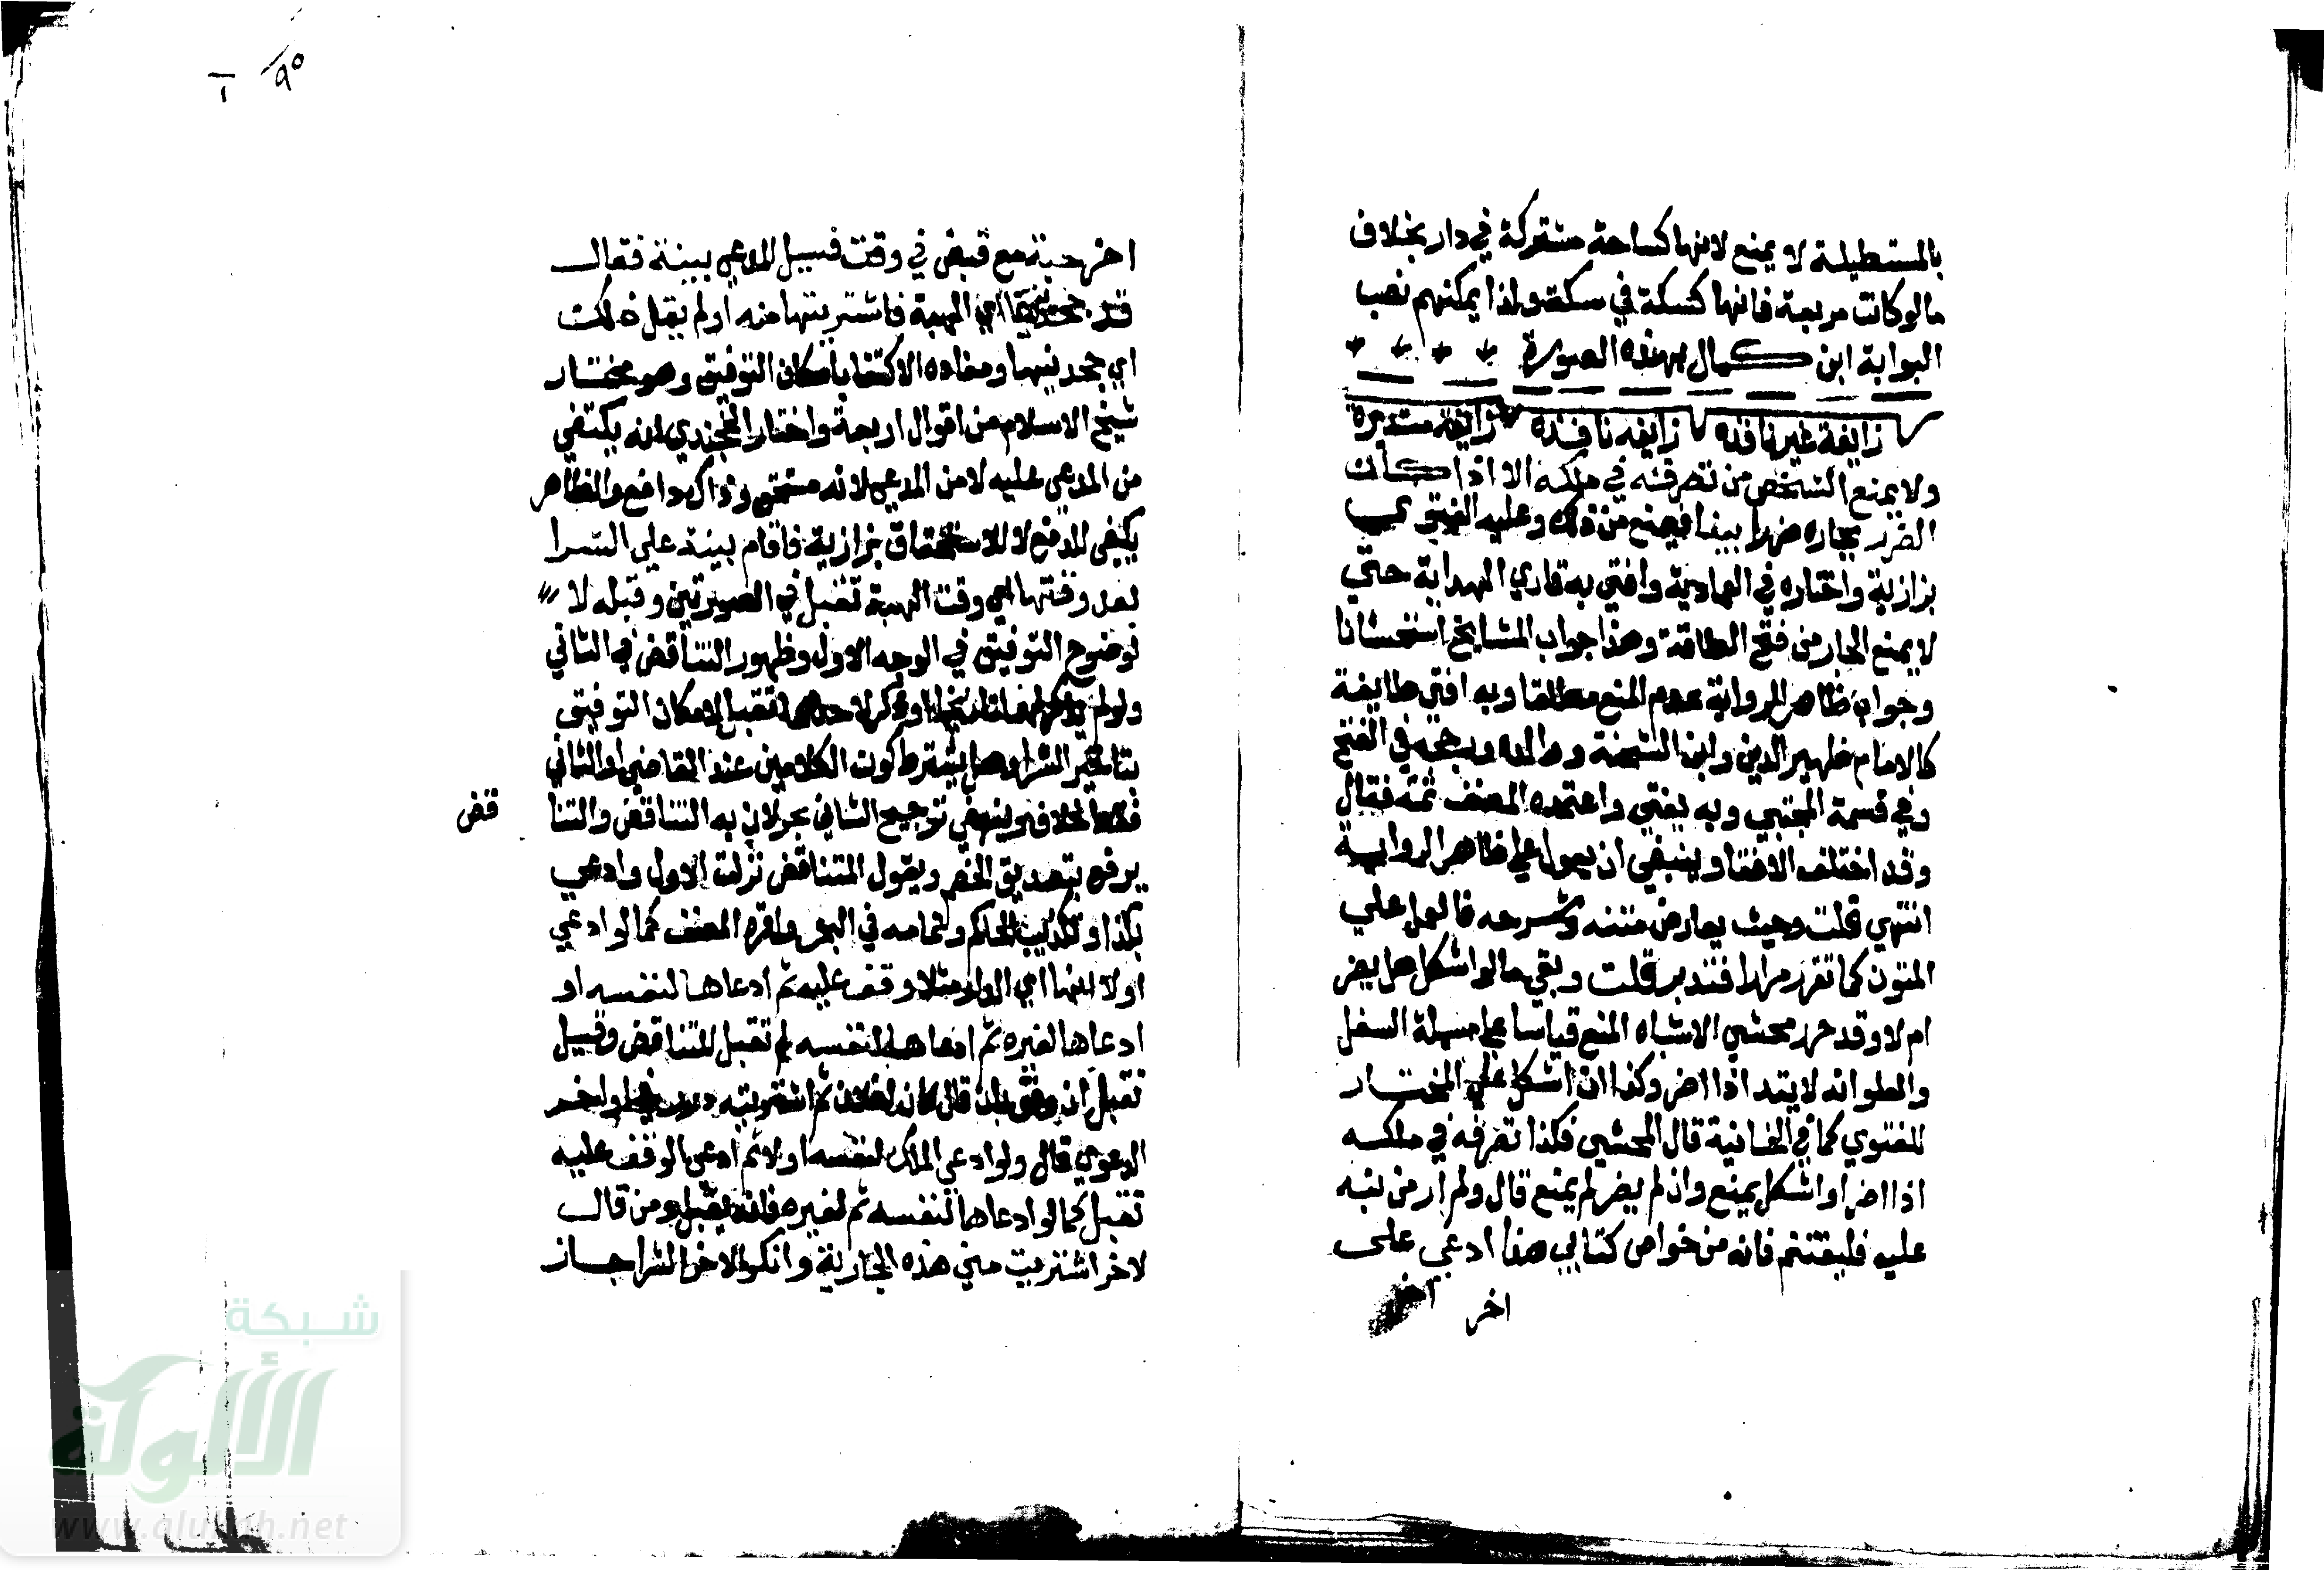 بالمستطيلة لا يمنع لانها كساحة مشتركة في دار بخلاف
مالو كانت مربعة فانها كسكة في سكة ولذا يمكنهم نصب
البوابة ابن كمال بهذه الصورة
زايغة غير نافذه زايغه نافذه زايغة مستديرة
ولا يمنع الشخص من تصرفه في ملكه الا اذا كان
الضرر بجاره ضررا بينا فيمنع من ذلك وعليه الفتوي
بزازية واختاره في العمادية وافتي به قاري الهداية حتي
لا يمنع الجار من فتح الطاقة وهذا جواب المشايخ استحسانا
وجواب ظاهر الرواية عدم المنع مطلقا وبه افتي طايفة
كالامام ظهير الدين وابن الشحنة ووالده ورجحه في الفتح
وفي قسمة المجتبي وبه يفتي واعتمده المصنف ثمة فقال
وقد اختلف الافتا وينبغي ان يعول علي ظاهر الرواية
انتهي قلت وحيث يعارض متنه وشرحه فالعمل علي
المتون كما تقرر مرارا فتدبر قلت وبقي مالو اشكل هل يضر
ام لا وقد حرر محشي الاشباه المنع قياسا علي مسيلة السفل
والعلو انه لا يتد اذا اضر وكذا ان اشكل علي المختار
للفتوي كما في الخانية قال المحشي فكذا تصرفه في ملكه
اذا اضر او اشكل يمنع وان لم يضر لم يمنع قال ولم ار من نبه
عليه فليغتنم فانه من خواص كتابي هذا ادعي علي
اخر
اخر هبة مع قبض في وقت فسيل المدعي بينة فقال
قد جحدنيها اي الهبة فاشتريتها منه او لم يقل ذلك
اي جحدنيها ومفاده الاكتفا بامكان التوفيق وهو مختار
شيخ الاسلام من اقوال اربعة واختار الخجندي انه يكتفي
من المدعي عليه لا من المدعي لانه مستحق وذاك دافع والظاهر
يكفي للدفع لا للاستحقاق بزازية فاقام بينة علي الشرا
بعد وقتها اي وقت الهبة تقبل في الصورتين وقبله لا
لوضوح التوفيق في الوجه الاول وظهور التناقض في الثاني
ولو لم يذكر لهما تاريخا او ذكر لاحدهما تقبل لامكان التوفيق
بتاخير الشرا وهل يشترط كون الكلامين عند القاضي او الثاني
فقط خلاف وينبغي ترجيح الثاني بحر لان به التناقض والتنا
قض
يرفع بتصديق الخصم وبقول المتناقض تركت الاول وادعي
بكذا او بتكذيب الحاكم وتمامه في البحر واقره المصنف كما لو ادعي
اولا انها اي الدار مثلا وقف عليه ثم ادعاها لنفسه او
ادعاها لغيره ثم ادعاها لنفسه لم تقبل للتناقض وقيل
تقبل ان وفق بان قال كان لفلان ثم اشتريته درر في اواخر
الدعوي قال ولو ادعي الملك لنفسه اولا ثم ادعي الوقف عليه
تقبل كما لو ادعاها لنفسه ثم لغيره فانه يقبل ومن قال
لاخر اشتريت مني هذه الجارية وانكر الاخر الشرا جاز
شبكة
الألوكة
www.alukah.net